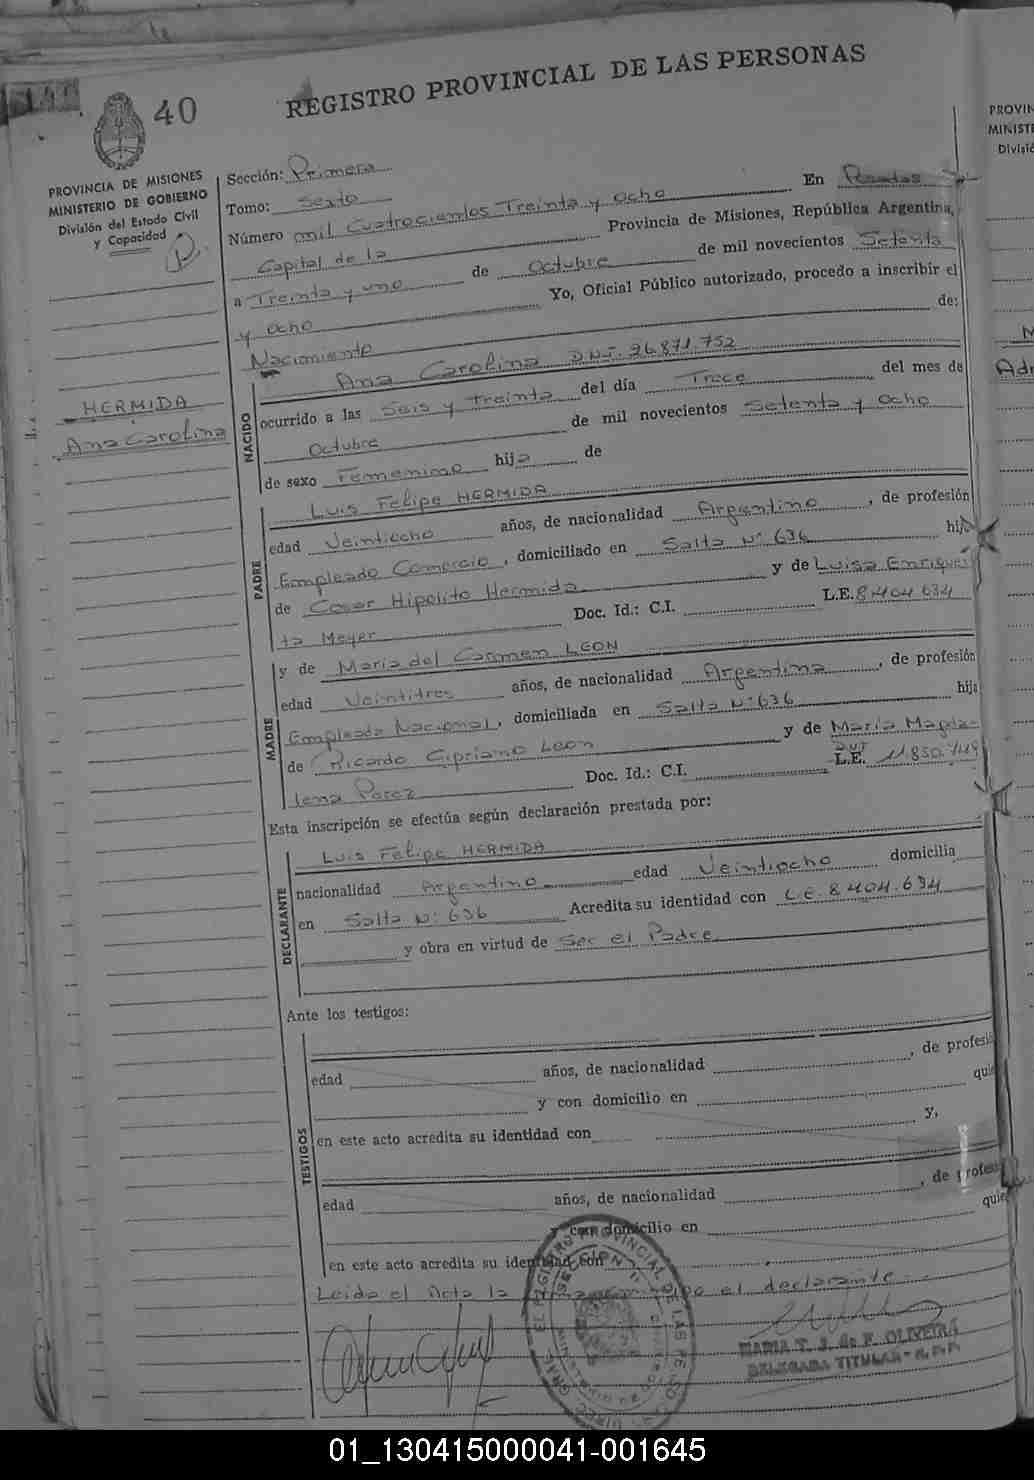 40
REGISTRO PROVINCIAL DE LAS PERSONAS
PROVINCIA DE MISIONES
MINISTERIO DE GOBIERNO
División del Estado Civil
y Capacidad
HERMIDA
Ana Carolina
Sección: Primera
Tomo: Sexto
Número mil Cuatrocientos Treinta y Ocho En Posadas
Capital de la Provincia de Misiones, República Argentina,
a Treinta y uno de Octubre de mil novecientos Setenta
y Ocho Yo, Oficial Público autorizado, procedo a inscribir el
Nacimiento de:
NACIDO
Ana Carolina D.N.I. 26.871.752
ocurrido a las Seis y Treinta del día Trece del mes de
Octubre de mil novecientos Setenta y Ocho
de sexo Femenino hija de
PADRE
Luis Felipe HERMIDA
edad Veintiocho años, de nacionalidad Argentino, de profesión
Empleado Comercio, domiciliado en Salta Nº 636 hijo
de Cesar Hipolito Hermida y de Luisa Enrique
ta Meyer Doc. Id.: C.I. L.E. 8.404.634
MADRE
y de Maria del Carmen LEON
edad Veintitres años, de nacionalidad Argentina, de profesión
Empleada Nacional, domiciliada en Salta Nº 636 hija
de Ricardo Cipriano Leon y de María Magda-
lena Perez Doc. Id.: C.I. D.N.I. L.E. 11.830.749
Esta inscripción se efectúa según declaración prestada por:
DECLARANTE
Luis Felipe HERMIDA
nacionalidad Argentino edad Veintiocho domicilia
en Salta Nº 636 Acredita su identidad con L.E. 8.404.634
y obra en virtud de Ser el Padre
Ante los testigos:
TESTIGOS
edad años, de nacionalidad , de profesi
y con domicilio en quie
en este acto acredita su identidad con y,
edad años, de nacionalidad , de profesi
y con domicilio en quie
en este acto acredita su identidad con
Leida el Acta la el declarante
MARIA T. J. de F. OLIVEIRA
DELEGADA TITULAR
REGISTRO PROVINCIAL DE LAS PERSO
SECCION
PROVIN
MINISTE
Divisió
01_130415000041-001645